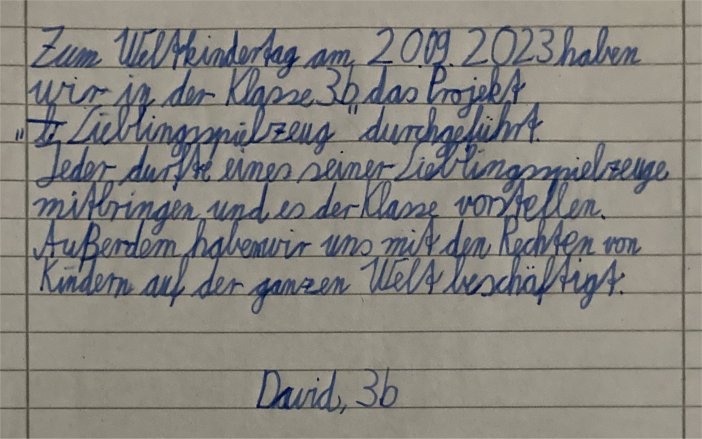 Zum Weltkindertag am 20.09.2023 haben
wir in der Klasse 3b das Projekt
„Lieblingsspielzeug" durchgeführt.
Jeder durfte eines seiner Lieblingsspielzeuge
mitbringen und es der Klasse vorstellen.
Außerdem haben wir uns mit den Rechten von
Kindern auf der ganzen Welt beschäftigt.
David, 3b